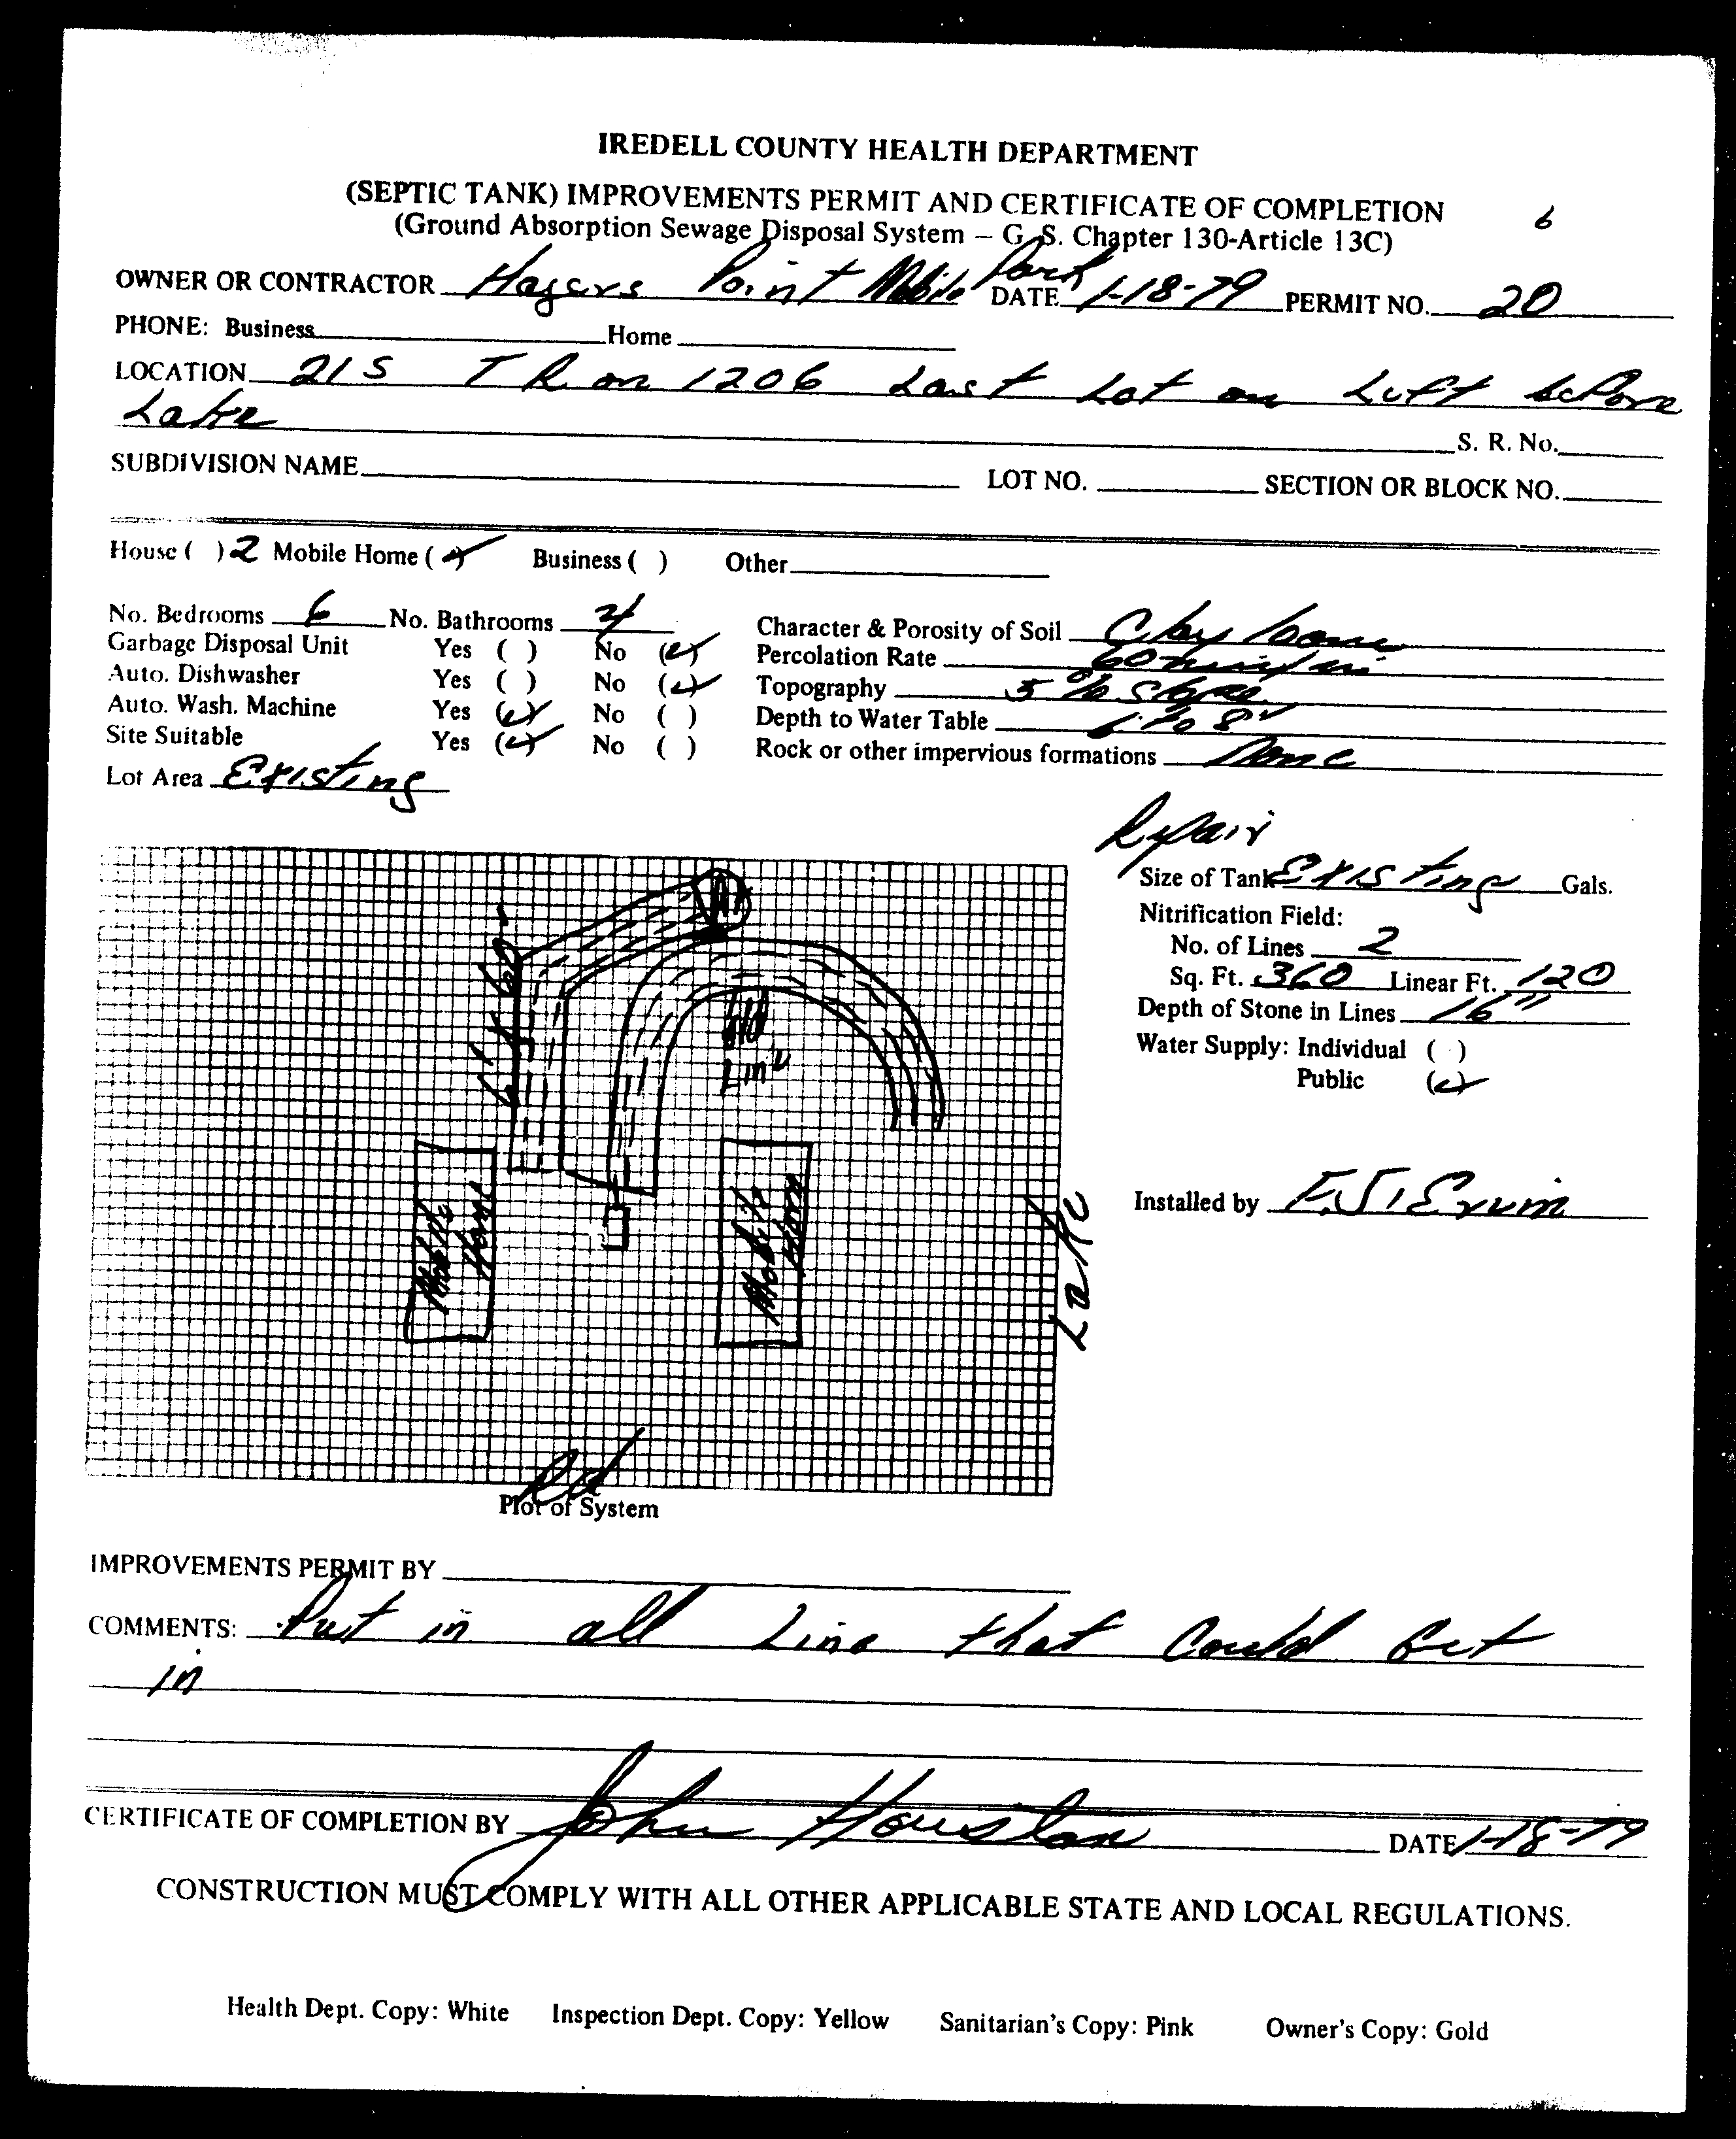 IREDELL COUNTY HEALTH DEPARTMENT
(SEPTIC TANK) IMPROVEMENTS PERMIT AND CERTIFICATE OF COMPLETION 6
(Ground Absorption Sewage Disposal System – G. S. Chapter 130-Article 13C)
OWNER OR CONTRACTOR Hagers Point Mobile Park DATE 1-18-79 PERMIT NO. 20
PHONE: Business Home
LOCATION 21 S T R on 1206 Last Lot on Left before
Lake
S. R. No.
SUBDIVISION NAME LOT NO. SECTION OR BLOCK NO.
House ( ) 2 Mobile Home (✓) Business ( ) Other
No. Bedrooms 6 No. Bathrooms 4 Character & Porosity of Soil Clay loam
Garbage Disposal Unit Yes ( ) No (✓) Percolation Rate 60 min/in
Auto. Dishwasher Yes ( ) No (✓) Topography 5% slope
Auto. Wash. Machine Yes (✓) No ( ) Depth to Water Table
Site Suitable Yes (✓) No ( ) Rock or other impervious formations None
Lot Area Existing
Repair
Size of Tank Existing Gals.
Nitrification Field:
No. of Lines 2
Sq. Ft. 360 Linear Ft. 120
Depth of Stone in Lines 16"
Water Supply: Individual ( )
Public (✓)
Installed by E.J. Ervin
Old
Line
Mobile
Home
Mobile
Home
Lake
Rd
Plot of System
IMPROVEMENTS PERMIT BY
COMMENTS: Put in all Line that Could Get
in
CERTIFICATE OF COMPLETION BY John Houston DATE 1-18-79
CONSTRUCTION MUST COMPLY WITH ALL OTHER APPLICABLE STATE AND LOCAL REGULATIONS.
Health Dept. Copy: White Inspection Dept. Copy: Yellow Sanitarian's Copy: Pink Owner's Copy: Gold